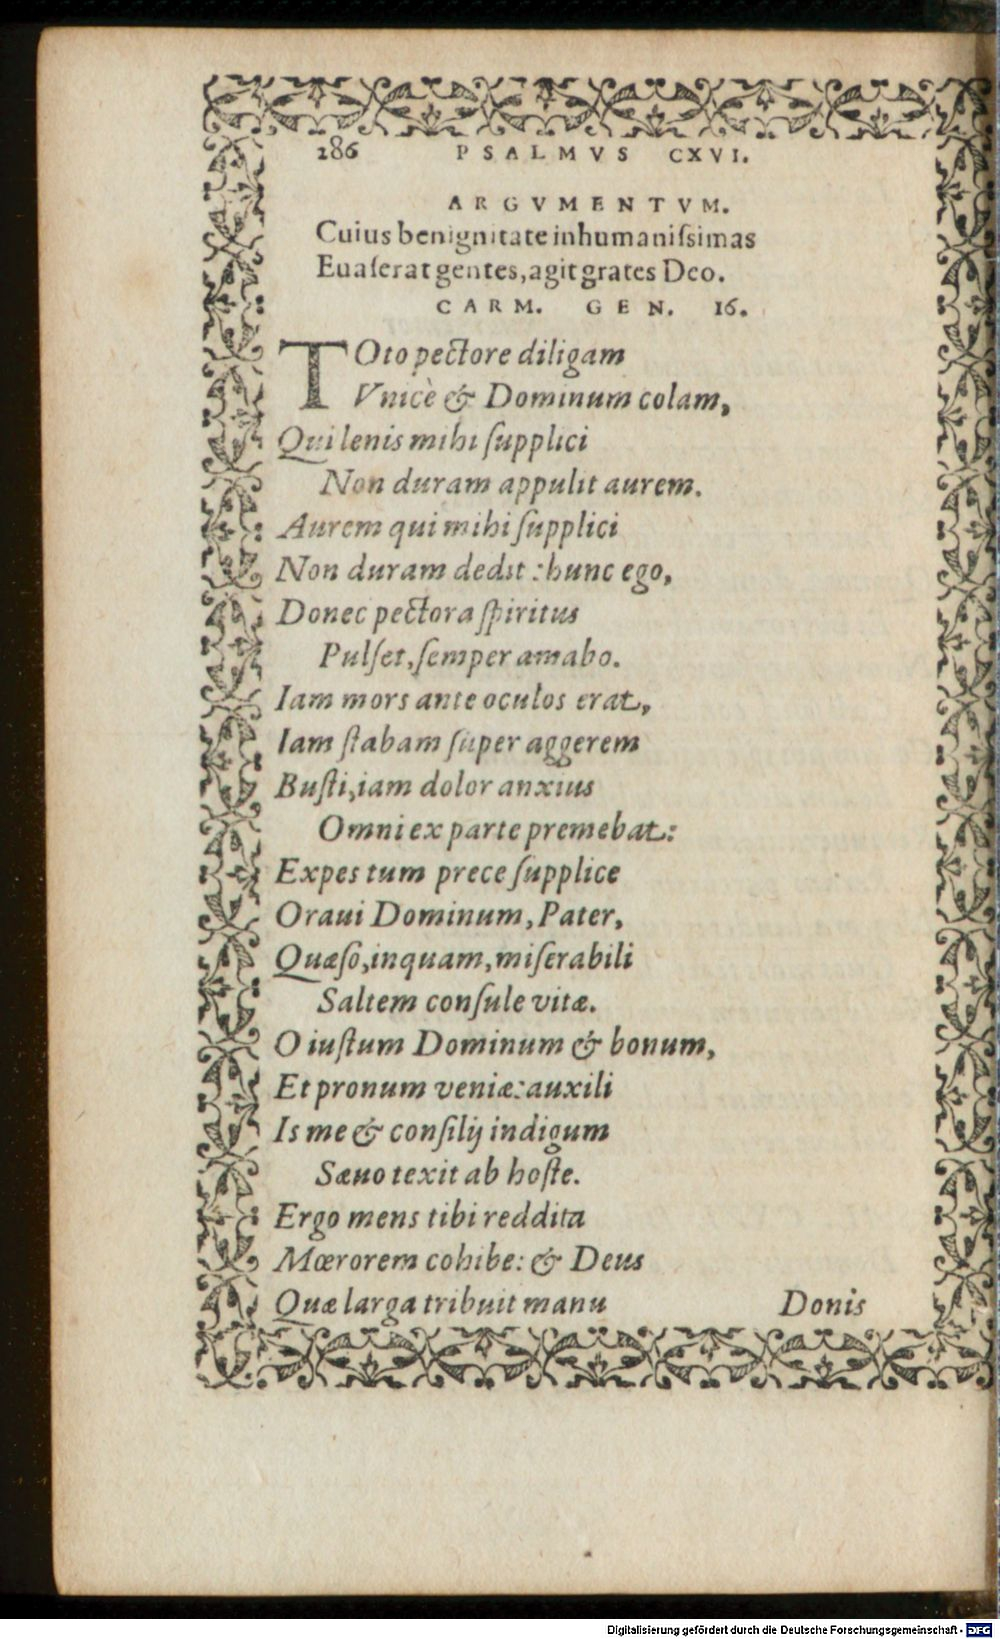 286 PSALMVS CXVI.
ARGVMENTVM.
Cuius benignitate inhumaniſsimas
Euaſerat gentes, agit grates Deo.
CARM. GEN. 16.
TOto pectore diligam
Vnicè & Dominum colam,
Qui lenis mihi ſupplici
Non duram appulit aurem.
Aurem qui mihi ſupplici
Non duram dedit: hunc ego,
Donec pectora ſpiritus
Pulſet, ſemper amabo.
Iam mors ante oculos erat,
Iam ſtabam ſuper aggerem
Buſti, iam dolor anxius
Omni ex parte premebat:
Expes tum prece ſupplice
Oraui Dominum, Pater,
Quæſo, inquam, miſerabili
Saltem conſule vitæ.
O iuſtum Dominum & bonum,
Et pronum veniæ: auxili
Is me & conſilij indigum
Sæuo texit ab hoſte.
Ergo mens tibi reddita
Mœrorem cohibe: & Deus
Quæ larga tribuit manu
Donis
Digitalisierung gefördert durch die Deutsche Forschungsgemeinschaft - DFG